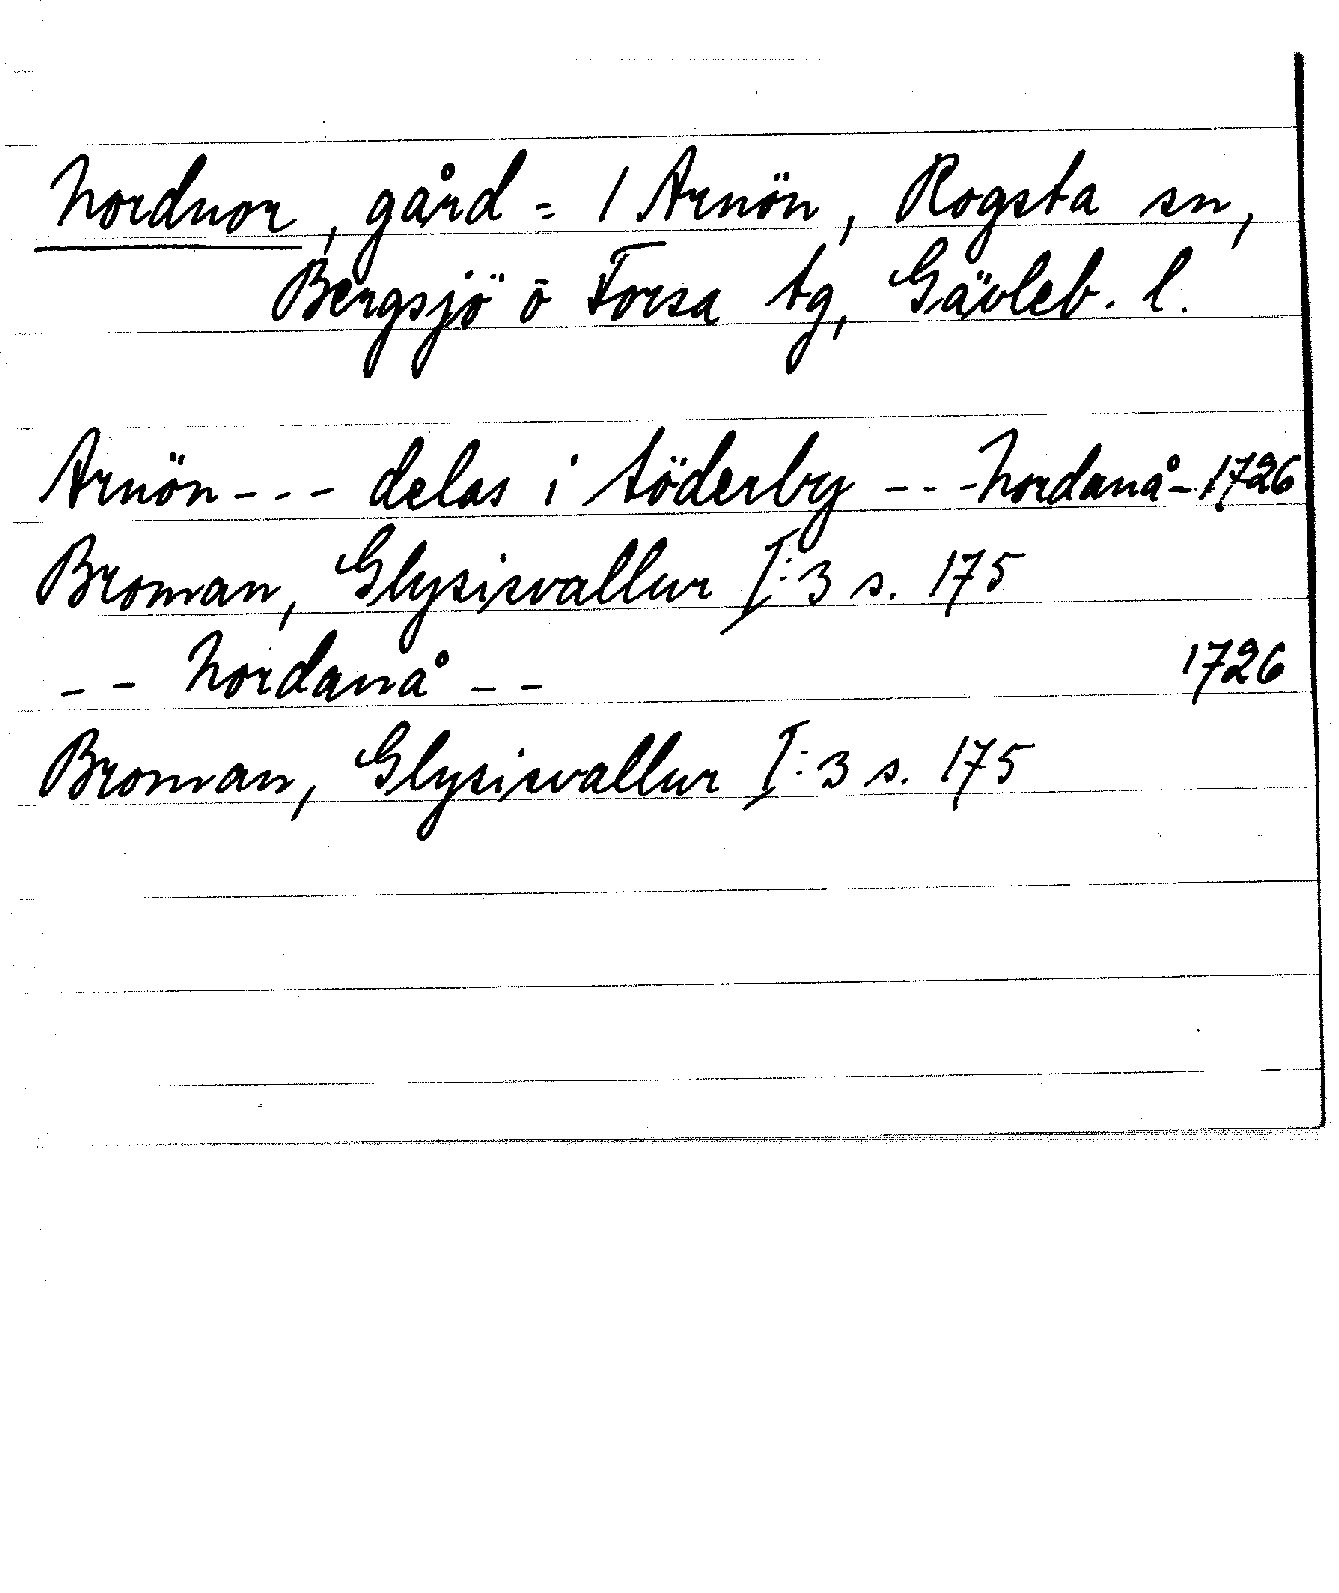 Nordnor, gård = 1 Arnön, Rogsta sn,
Bergsjö o Forsa tg, Gävleb. l.
Arnön - - - delas i Söderby - - - Nordanå - 1726
Broman, Glysisvallur I:3 s. 175
- - Nordanå - - 1726
Broman, Glysisvallur I:3 s. 175